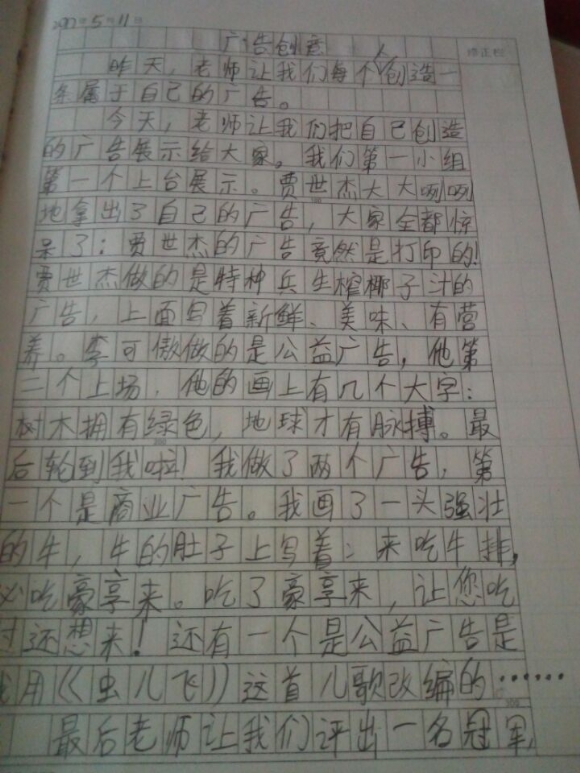 5.11
广告创意
昨天，老师让我们每个人创造一
条属于自己的广告。
今天，老师让我们把自己创造
的广告展示给大家。我们第一小组
第一个上台展示。贾世杰大大咧咧
地拿出了自己的广告，大家全都惊
呆了：贾世杰的广告竟然是打印的！
贾世杰做的是特种兵生榨椰子汁的
广告，上面写着新鲜、美味、有营
养。李可傲做的是公益广告，他第
二个上场，他的画上有几个大字：
树木拥有绿色，地球才有脉搏。最
后轮到我啦！我做了两个广告，第
一个是商业广告。我画了一头强壮
的牛，牛的肚子上写着：来吃牛排，
必吃豪享来。吃了豪享来，让您吃
过还想来！还有一个是公益广告是
我用《虫儿飞》这首儿歌改编的……
最后老师让我们评出一名冠军，